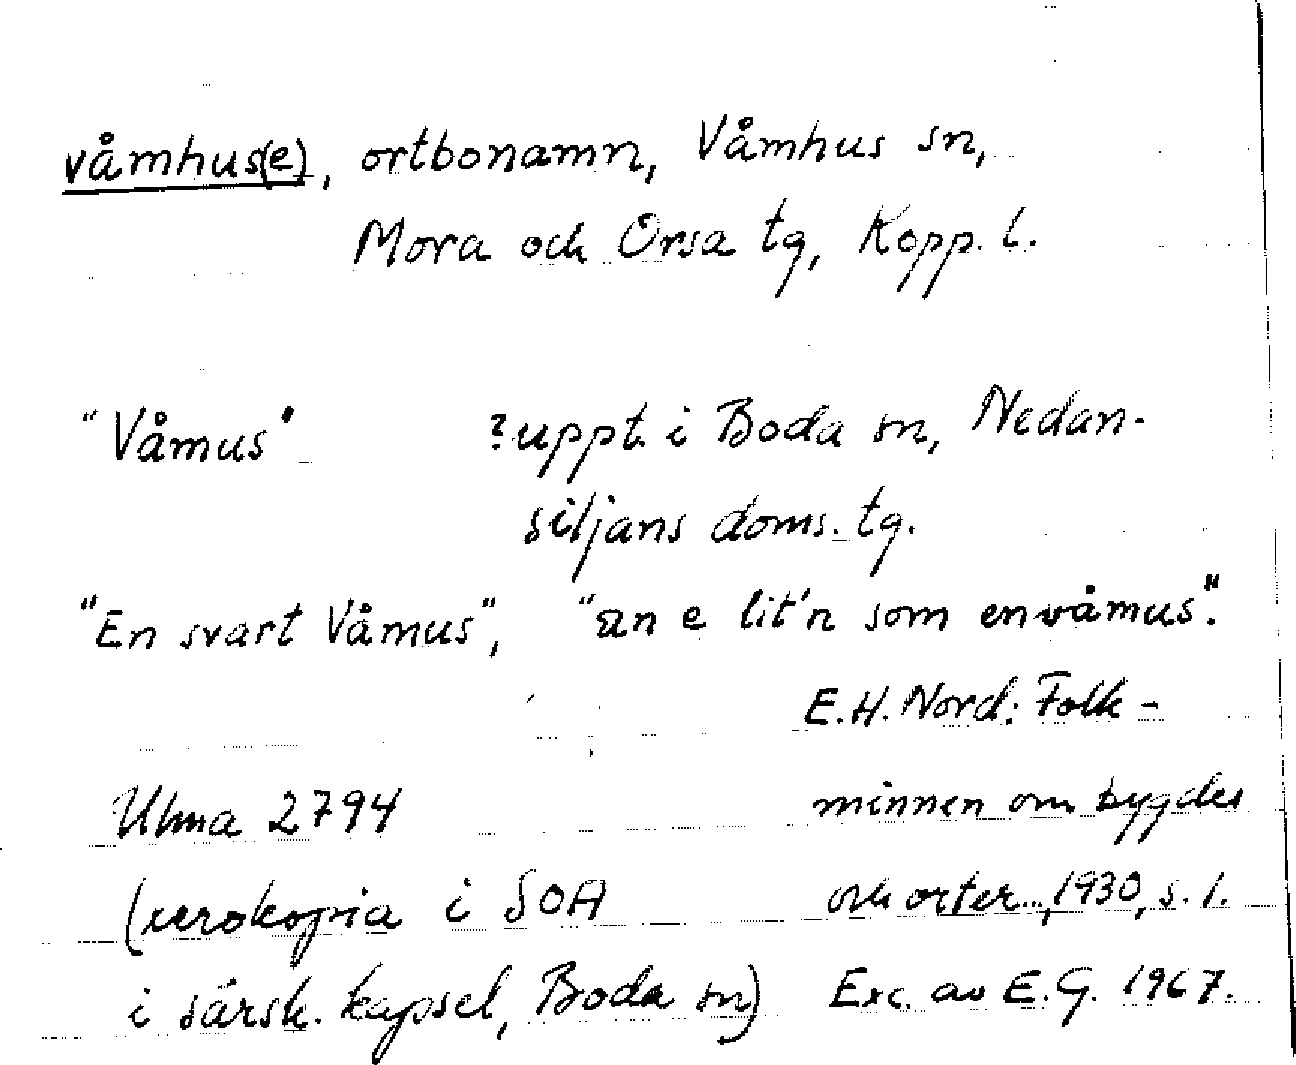 våmhus(e), ortbonamn, Våmhus sn,
Mora och Orsa tg, Kopp. l.
"Våmus" ?uppt. i Boda sn, Nedan-
siljans doms. tg.
"En svart Våmus", "än e lit'n som en våmus".
E.H. Nord: Folk-
Ulma 2794 minnen om bygder
(xerokopia i SOA och orter..., 1930, s. 1.
i särsk. kapsel, Boda sn) Exc. av E.G. 1967.